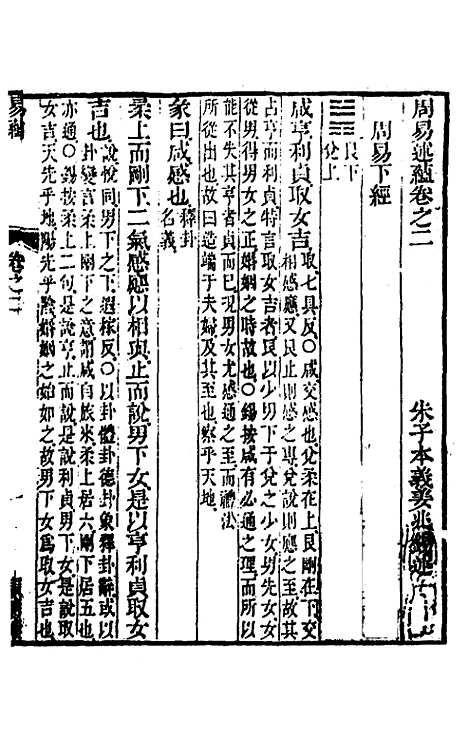 周易述蘊卷之二
朱子本義姜兆錫述
周易下經
艮下
兌上
咸亨利貞取女吉
取七具反〇咸交感也兌柔在上艮剛在下交
相感應又艮止則感之專兌說則應之至故其
占亨而利貞特言取女吉者艮以少男下于兌之少女男先女
從男得男女之正婚姻之時故也〇錫按咸有必通之理而所以
能不失其亨者貞而已況男女尤感通之至而禮法
所從出也故曰造端于夫婦及其至也察乎天地
彖曰咸感也
釋卦
名義
柔上而剛下二氣感應以相與止而說男下女是以亨利貞取女
吉也
說悅同男下之下遐稼反〇以卦體卦德卦象釋卦辭或以
卦變言柔上剛下之意謂咸自旅來柔上居六剛下居五也
亦通〇錫按柔上二句是說亨止而說是說利貞男下女是說取
女吉天先乎地陽先乎陰婚姻之始如之故男下女爲取女吉也
卷之二